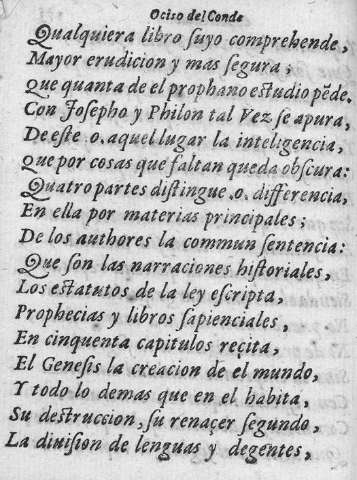 Ociso del Conde
Qualquiera libro suyo comprehende,
Mayor erudicion y mas segura;
Que quanta de el prophano estudio pẽde.
Con Josepho y Philon tal Vez se apura,
De este .o. aquel lugar la inteligencia,
Que por cosas que faltan queda obscura:
Quatro partes distingue .o. differencia,
En ella por materias principales;
De los authores la commun sentencia:
Que son las narraciones historiales,
Los estatutos de la ley escripta,
Prophecias y libros sapienciales,
En cinquenta capitulos reçita,
El Genesis la creacion de el mundo,
Y todo lo demas que en el habita,
Su destruccion, su renaçer segundo,
La diuision de lenguas y degentes,